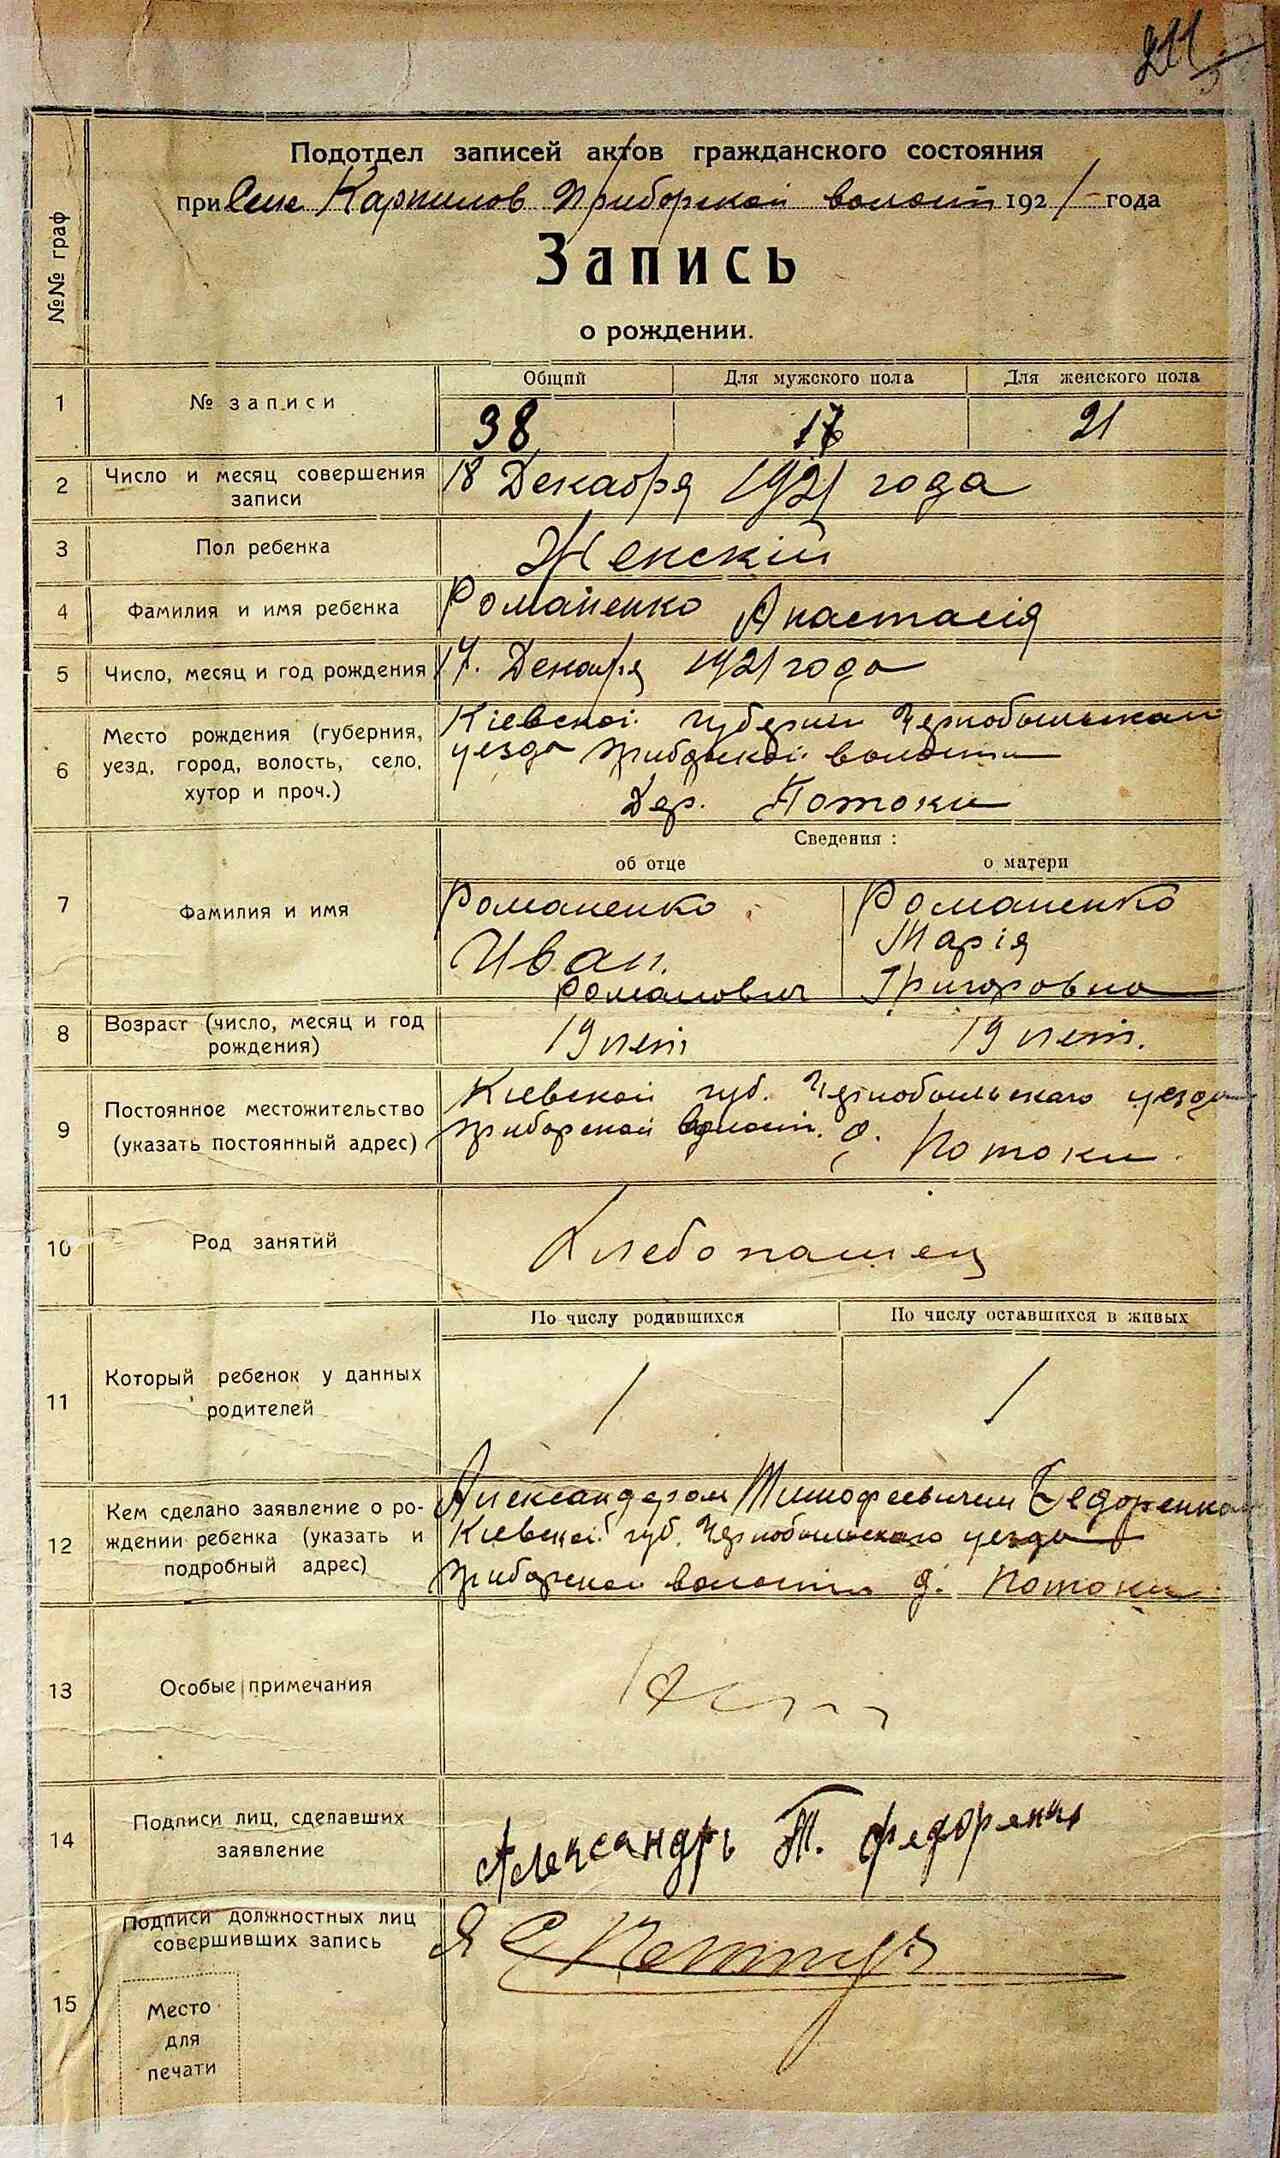 211
Подотдел записей актов гражданского состояния
при Селе Карпилов Приборской волости 1921 года
№№ граф
Запись
о рождении.
Общий Для мужского пола Для женского пола
1 № записи 38 17 21
2 Число и месяц совершения записи 18 Декабря 1921 года
3 Пол ребенка Женскій
4 Фамилия и имя ребенка Романенко Анастасія
5 Число, месяц и год рождения 17. Декабря 1921 года
6 Место рождения (губерния, уезд, город, волость, село, хутор и проч.)
Кіевской губернии Чернобыльскаго
уезда Приборской волости
Дер. Потоки
Сведения:
об отце о матери
7 Фамилия и имя
Романенко Романенко
Иван. Марія
Романович Григоровна
8 Возраст (число, месяц и год рождения) 19 лет 19 лет.
9 Постоянное местожительство (указать постоянный адрес)
Киевской губ. Чернобыльскаго уезда
Приборской волост. д. Потоки
10 Род занятий Хлебопашец
По числу родившихся По числу оставшихся в живых
11 Который ребенок у данных родителей 1 1
12 Кем сделано заявление о рождении ребенка (указать и подробный адрес)
Александром Тимофеевичем Федоренком
Киевской губ. Чернобыльскаго уезда
Приборской волости д. Потоки
13 Особые примечания
14 Подписи лиц, сделавших заявление Александръ Т. Федоренко
15 Подписи должностных лиц совершивших запись
Место
для
печати